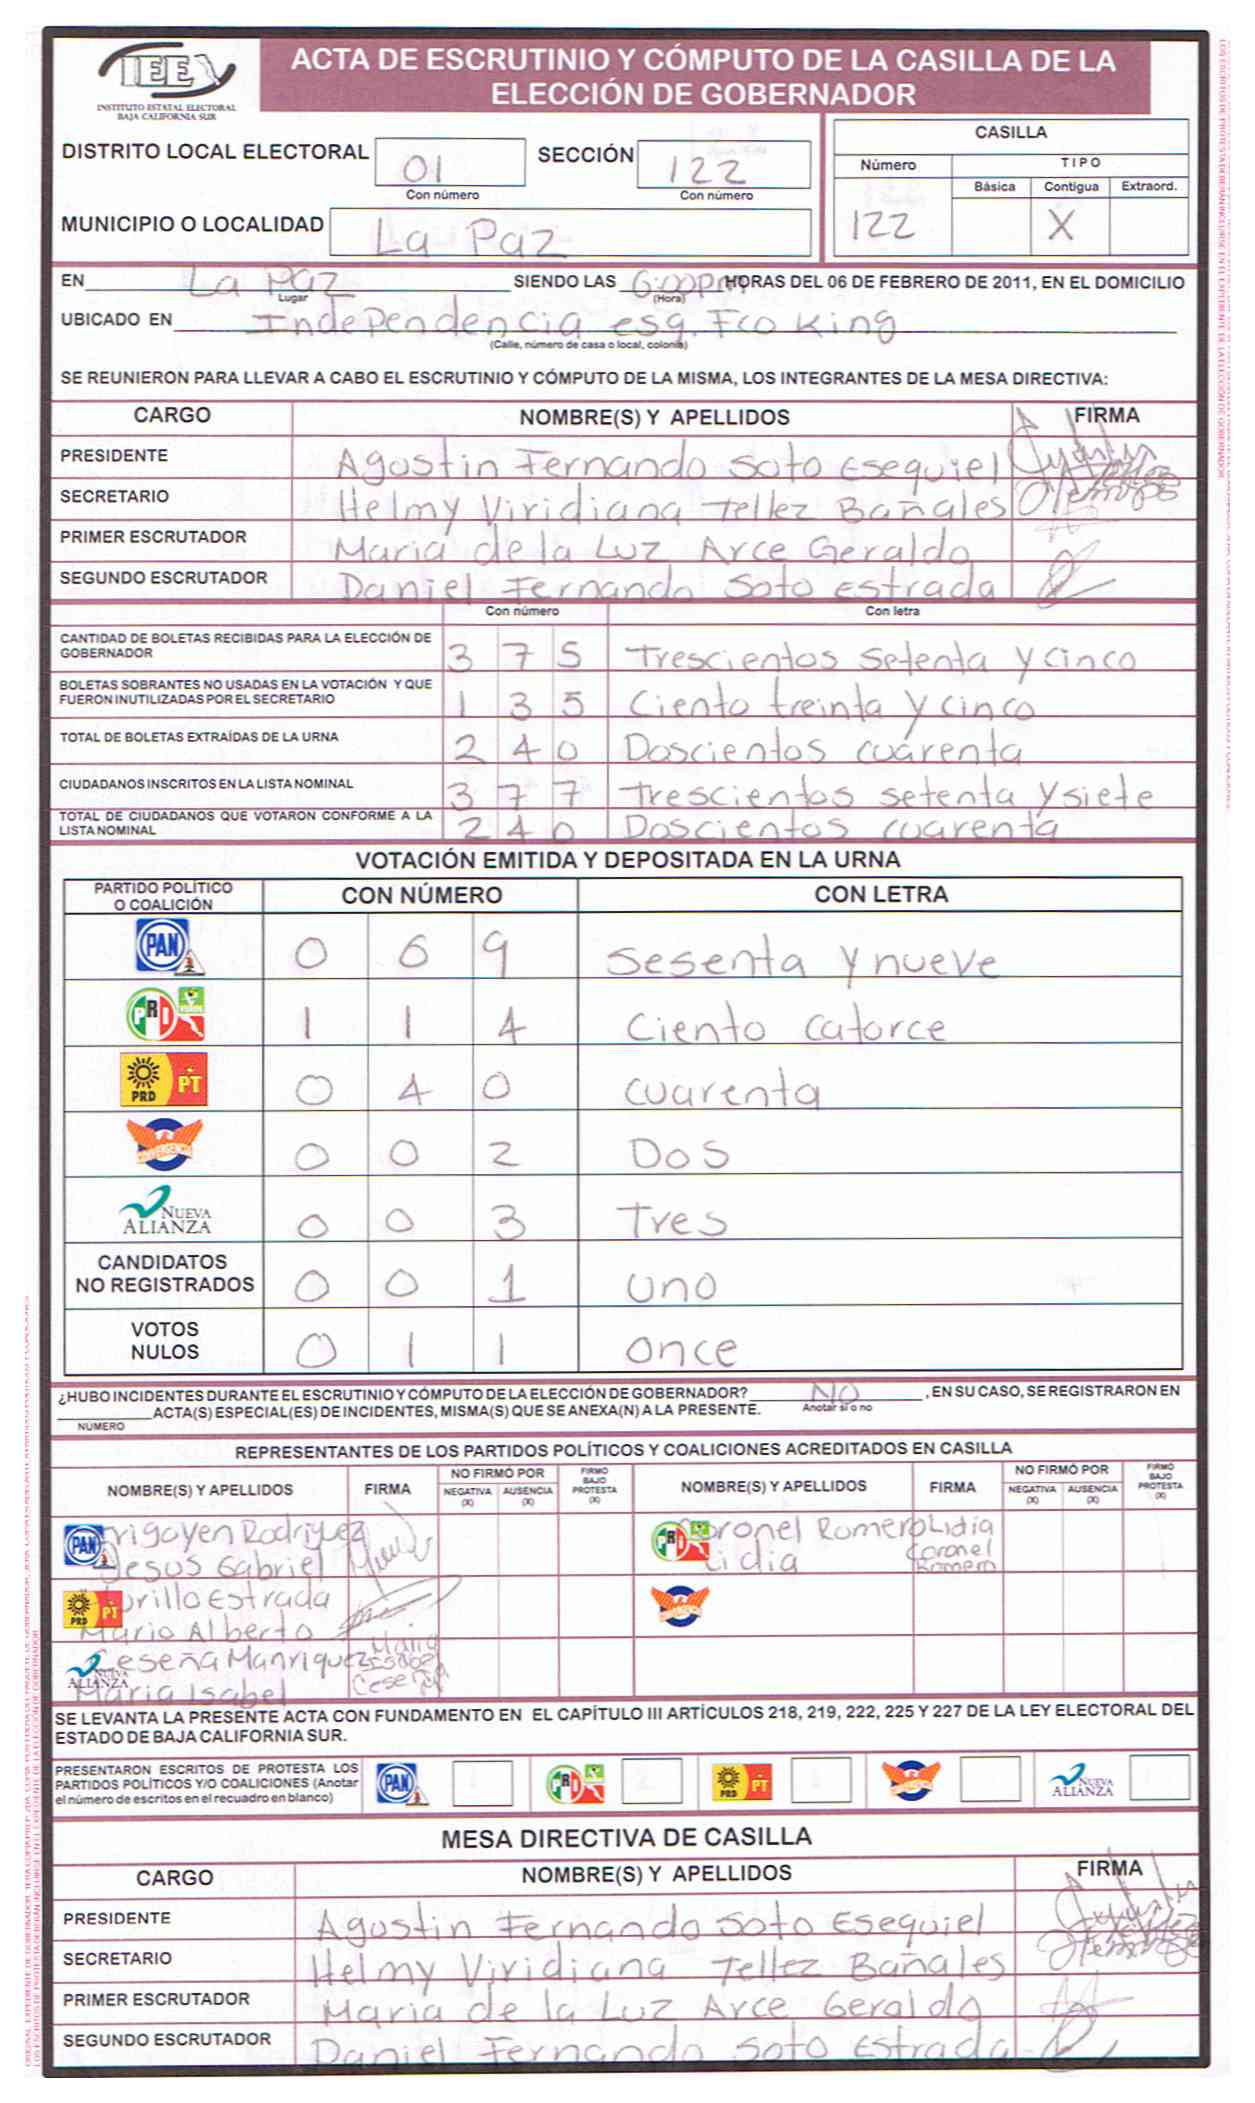 IEE
INSTITUTO ESTATAL ELECTORAL
BAJA CALIFORNIA SUR
ACTA DE ESCRUTINIO Y CÓMPUTO DE LA CASILLA DE LA
ELECCIÓN DE GOBERNADOR
DISTRITO LOCAL ELECTORAL 01 SECCIÓN 122
Con número Con número
MUNICIPIO O LOCALIDAD La Paz
CASILLA
Número TIPO
Básica Contigua Extraord.
122 X
EN La Paz SIENDO LAS 6:00pm HORAS DEL 06 DE FEBRERO DE 2011, EN EL DOMICILIO
Lugar (Hora)
UBICADO EN Independencia esq. Fco King
(Calle, número de casa o local, colonia)
SE REUNIERON PARA LLEVAR A CABO EL ESCRUTINIO Y CÓMPUTO DE LA MISMA, LOS INTEGRANTES DE LA MESA DIRECTIVA:
CARGO NOMBRE(S) Y APELLIDOS FIRMA
PRESIDENTE Agustin Fernando Soto Esequiel
SECRETARIO Helmy Viridiana Tellez Bañales
PRIMER ESCRUTADOR Maria de la Luz Arce Geraldo
SEGUNDO ESCRUTADOR Daniel Fernando Soto Estrada
Con número Con letra
CANTIDAD DE BOLETAS RECIBIDAS PARA LA ELECCIÓN DE
GOBERNADOR 3 7 5 Trescientos setenta y cinco
BOLETAS SOBRANTES NO USADAS EN LA VOTACIÓN Y QUE
FUERON INUTILIZADAS POR EL SECRETARIO 1 3 5 Ciento treinta y cinco
TOTAL DE BOLETAS EXTRAÍDAS DE LA URNA 2 4 0 Doscientos cuarenta
CIUDADANOS INSCRITOS EN LA LISTA NOMINAL 3 7 7 Trescientos setenta y siete
TOTAL DE CIUDADANOS QUE VOTARON CONFORME A LA
LISTA NOMINAL 2 4 0 Doscientos cuarenta
VOTACIÓN EMITIDA Y DEPOSITADA EN LA URNA
PARTIDO POLÍTICO
O COALICIÓN CON NÚMERO CON LETRA
PAN 0 6 9 sesenta y nueve
PRI VERDE 1 1 4 Ciento catorce
PRD PT 0 4 0 cuarenta
CONVERGENCIA 0 0 2 Dos
NUEVA ALIANZA 0 0 3 Tres
CANDIDATOS
NO REGISTRADOS 0 0 1 uno
VOTOS
NULOS 0 1 1 once
¿HUBO INCIDENTES DURANTE EL ESCRUTINIO Y CÓMPUTO DE LA ELECCIÓN DE GOBERNADOR? NO , EN SU CASO, SE REGISTRARON EN
Anotar si o no
ACTA(S) ESPECIAL(ES) DE INCIDENTES, MISMA(S) QUE SE ANEXA(N) A LA PRESENTE.
NÚMERO
REPRESENTANTES DE LOS PARTIDOS POLÍTICOS Y COALICIONES ACREDITADOS EN CASILLA
NOMBRE(S) Y APELLIDOS FIRMA NO FIRMÓ POR NEGATIVA (X) AUSENCIA (X) FIRMÓ BAJO PROTESTA (X) NOMBRE(S) Y APELLIDOS FIRMA NO FIRMÓ POR NEGATIVA (X) AUSENCIA (X) FIRMÓ BAJO PROTESTA (X)
PAN Irigoyen Rodriguez
Jesus Gabriel
PRI Coronel Romero Lidia Lidia Coronel Romero
PRD PT Murillo Estrada
Mario Alberto
NUEVA ALIANZA Ceseña Manriquez
Maria Isabel Maria Isabel Ceseña
SE LEVANTA LA PRESENTE ACTA CON FUNDAMENTO EN EL CAPÍTULO III ARTÍCULOS 218, 219, 222, 225 Y 227 DE LA LEY ELECTORAL DEL
ESTADO DE BAJA CALIFORNIA SUR.
PRESENTARON ESCRITOS DE PROTESTA LOS
PARTIDOS POLÍTICOS Y/O COALICIONES (Anotar
el número de escritos en el recuadro en blanco)
PAN PRI PRD PT NUEVA ALIANZA
MESA DIRECTIVA DE CASILLA
CARGO NOMBRE(S) Y APELLIDOS FIRMA
PRESIDENTE Agustin Fernando Soto Esequiel
SECRETARIO Helmy Viridiana Tellez Bañales
PRIMER ESCRUTADOR Maria de la Luz Arce Geraldo
SEGUNDO ESCRUTADOR Daniel Fernando Soto Estrada